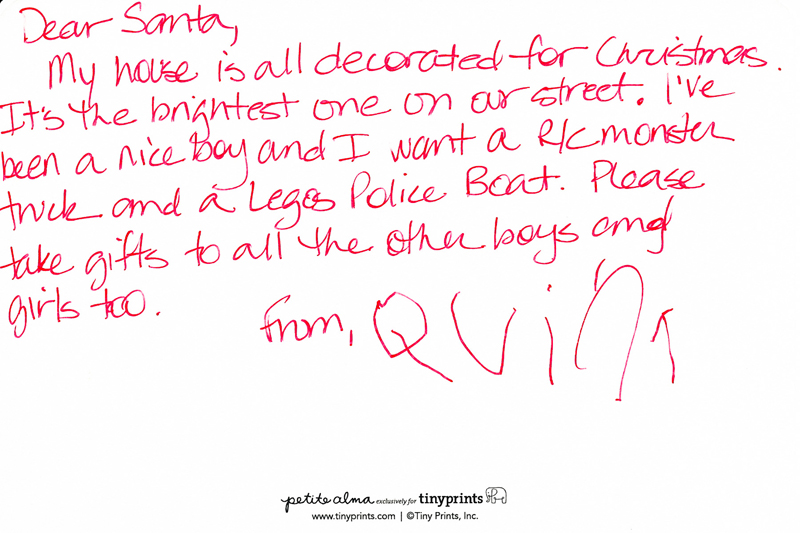 Dear Santa,
My house is all decorated for Christmas.
It's the brightest one on our street. I've
been a nice boy and I want a R/C monster
truck and a Legos Police Boat. Please
take gifts to all the other boys and
girls too.
From, Quinn
petite alma exclusively for tinyprints
www.tinyprints.com | ©Tiny Prints, Inc.